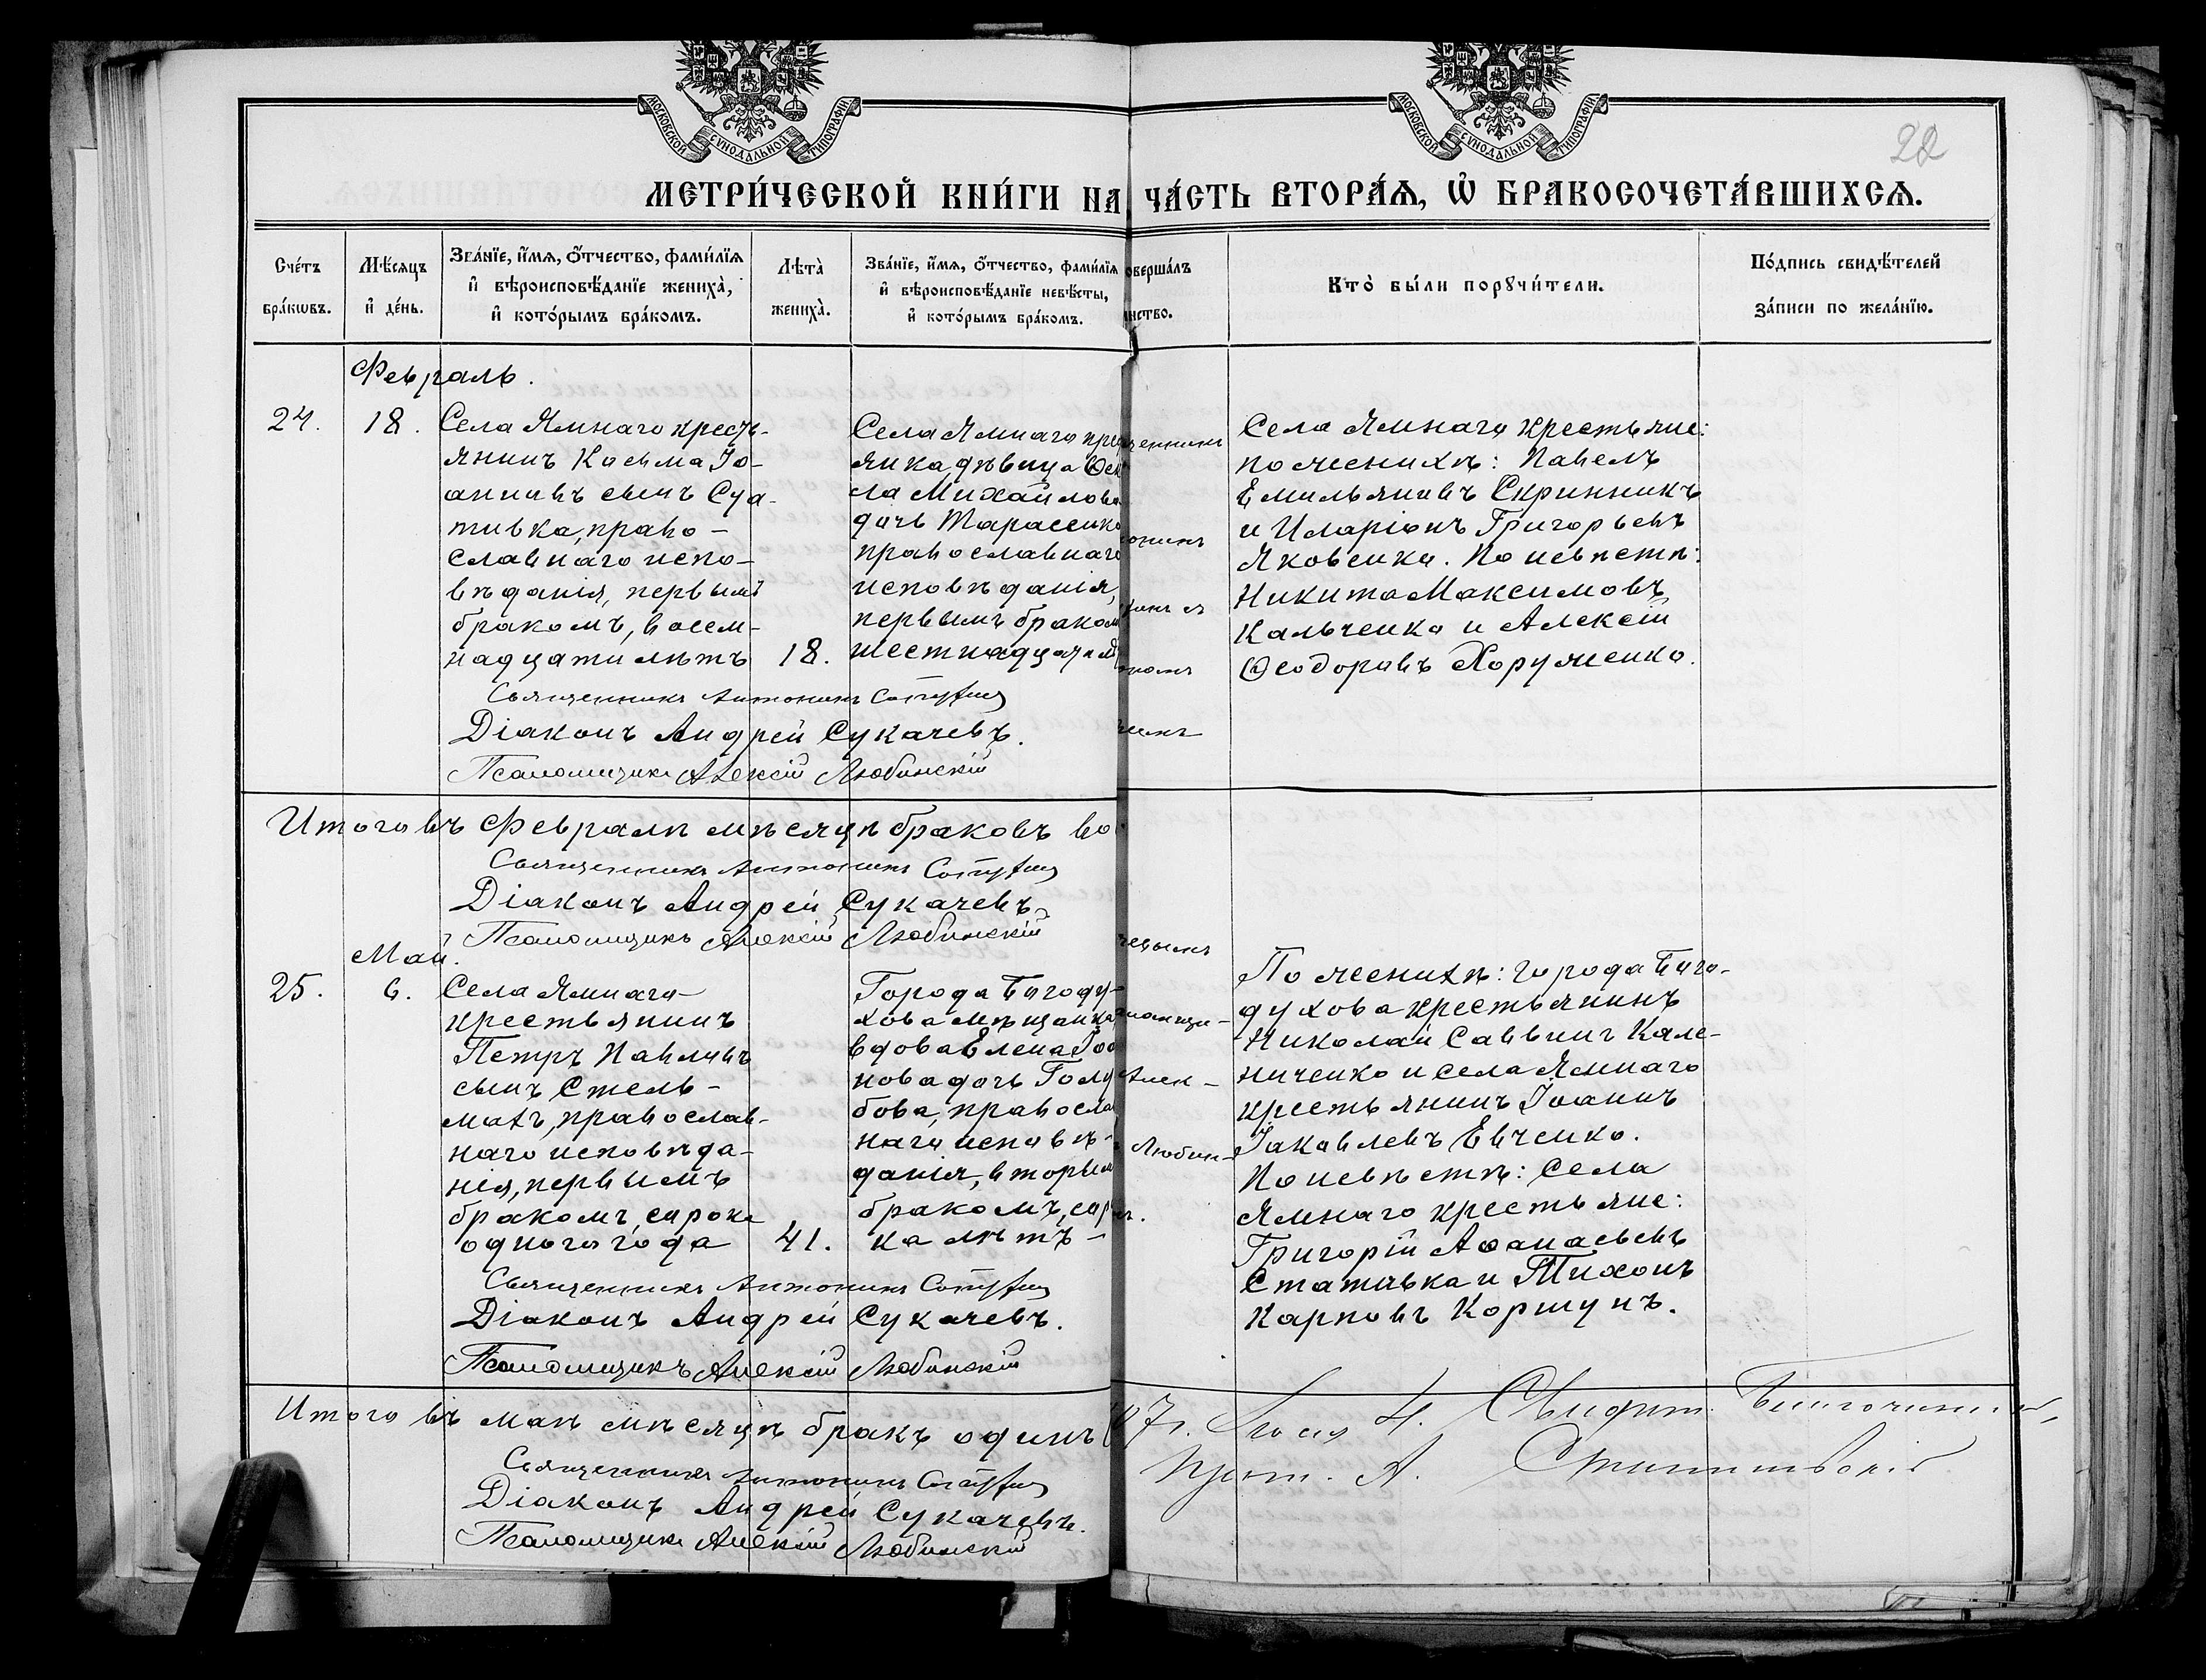 МОСКОВСКОЙ СѴНОДАЛЬНОЙ ТИПОГРАФІИ
МОСКОВСКОЙ СѴНОДАЛЬНОЙ ТИПОГРАФІИ
22
МЕТРИ́ЧЕСКОЙ КНИ́ГИ НА ЧА́СТЬ ВТОРА́Ѧ, Ѽ БРАКОСОЧЕТА́ВШИХСѦ.
Сче́тъ
бра́кѡвъ.
Мѣ́сяцъ
и҆ де́нь.
Зва́нїе, и҆́мѧ, ѻ҆́тчество, фами́лїѧ
и҆ вѣроисповѣ́данїе жениха̀,
и҆ кото́рымъ бра́комъ.
Лѣта̀
жениха̀.
Зва́нїе, и҆́мѧ, ѻ҆́тчество, фами́лїѧ
и҆ вѣроисповѣ́данїе невѣ́сты,
и҆ кото́рымъ бра́комъ.
оверша́лъ
нство.
Кто̀ бы́ли порꙋчи́тели.
По́дпись свидѣ́телей
за́писи по жела́нїю.
Февраль.
24.
18.
Села Ямнаго кресть-
янинъ Косьма Іо-
анновъ сынъ Ста-
тивка, право-
славнаго испо-
вѣданія, первымъ
бракомъ, восем-
надцати лѣтъ
18.
Села Ямнаго кре
янка, дѣвица Ѳек
ла Михайлова
дочь Тарасенко
православнаго
исповѣданія,
первымъ браком
шестнадцати
щенникъ
Села Ямнаго крестьяне:
по женихѣ: Павелъ
Емильяновъ Скринникъ
и Иларіонъ Григорьевъ
Яковенко. По невѣстѣ:
Никита Максимовъ
Кальченко и Алексій
Ѳеодоровъ Хоруженко.
Священникъ Антонинъ
Діаконъ Андрей Сукачевъ.
Псаломщикъ Алексій Любинскій
Итого въ Февралѣ мѣсяцѣ браковъ во
Священникъ Антонинъ
Діаконъ Андрей Сукачевъ
Псаломщикъ Алексій Любинскій
Май.
25.
6.
Села Ямнаго
крестьянинъ
Петръ Павловъ
сынъ Стель-
махъ, православ-
наго исповѣда-
нія, первымъ
бракомъ, сорока
одного года
41.
Города Богоду-
хова мѣщанка
вдова Елена Іоа
нова дочь Голу
бова, правосла
наго исповѣ-
данія, вторым
бракомъ, сор
ка лѣтъ
Алек-
Любин-
По женихѣ: города Бого-
духова крестьянинъ
Николай Саввинъ Кале-
ниченко и села Ямнаго
крестьянинъ Іоаннъ
Іаковлевъ Евченко.
По невѣстѣ: Села
Ямнаго крестьяне:
Григорій Аѳанасьевъ
Стативка и Тихонъ
Карповъ Коршунъ.
Священникъ Антонинъ
Діаконъ Андрей Сукачевъ.
Псаломщикъ Алексій Любинскій
Итого въ маѣ мѣсяцѣ бракъ одинъ (
Священникъ Антонинъ
Діаконъ Андрей Сукачевъ.
Псаломщикъ Алексій Любинскій
7 г. Іюля 4. Свидѣт. Благочинный,
Прот. А.